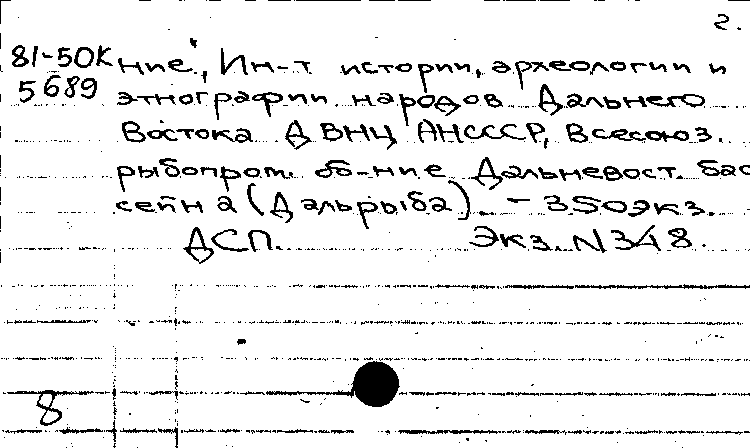 2.
81-50К ние", Ин-т истории, археологии и
5689 этнографии народов Дальнего
Востока ДВНЦ АНСССР, Всесоюз.
рыбопром. об-ние Дальневост. бас
сейна (Дальрыба). - 350экз.
ДСП. Экз. N348.
8